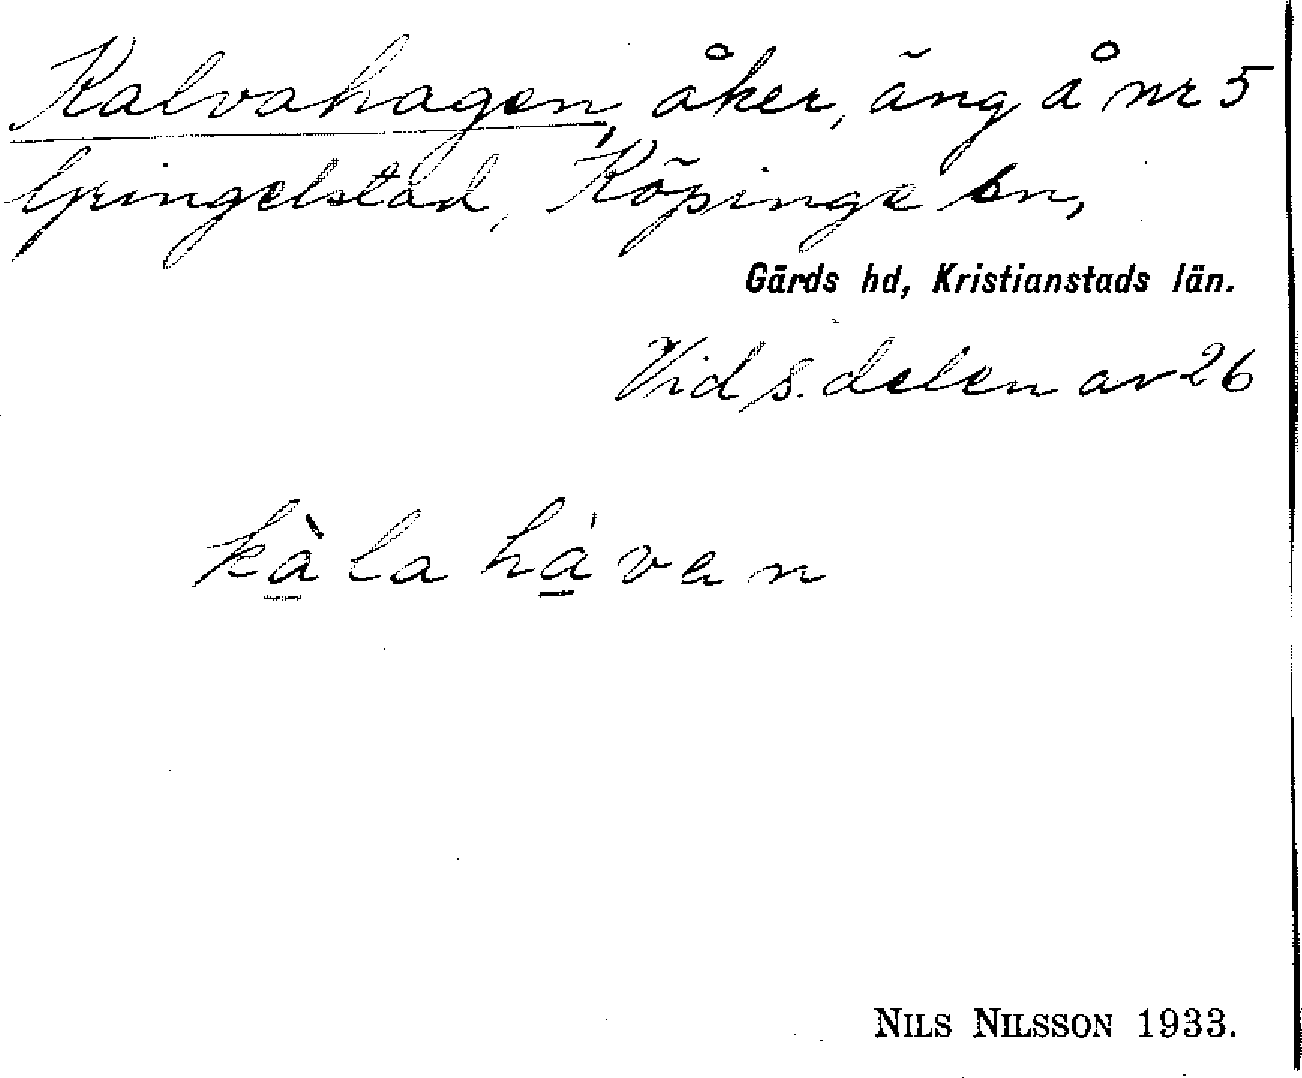 Kalvahagen, åker, äng å nr 5
Gringelstad, Köpinge sn,
Gärds hd, Kristianstads län.
Vid s. delen av 26
kàla hávan
NILS NILSSON 1933.